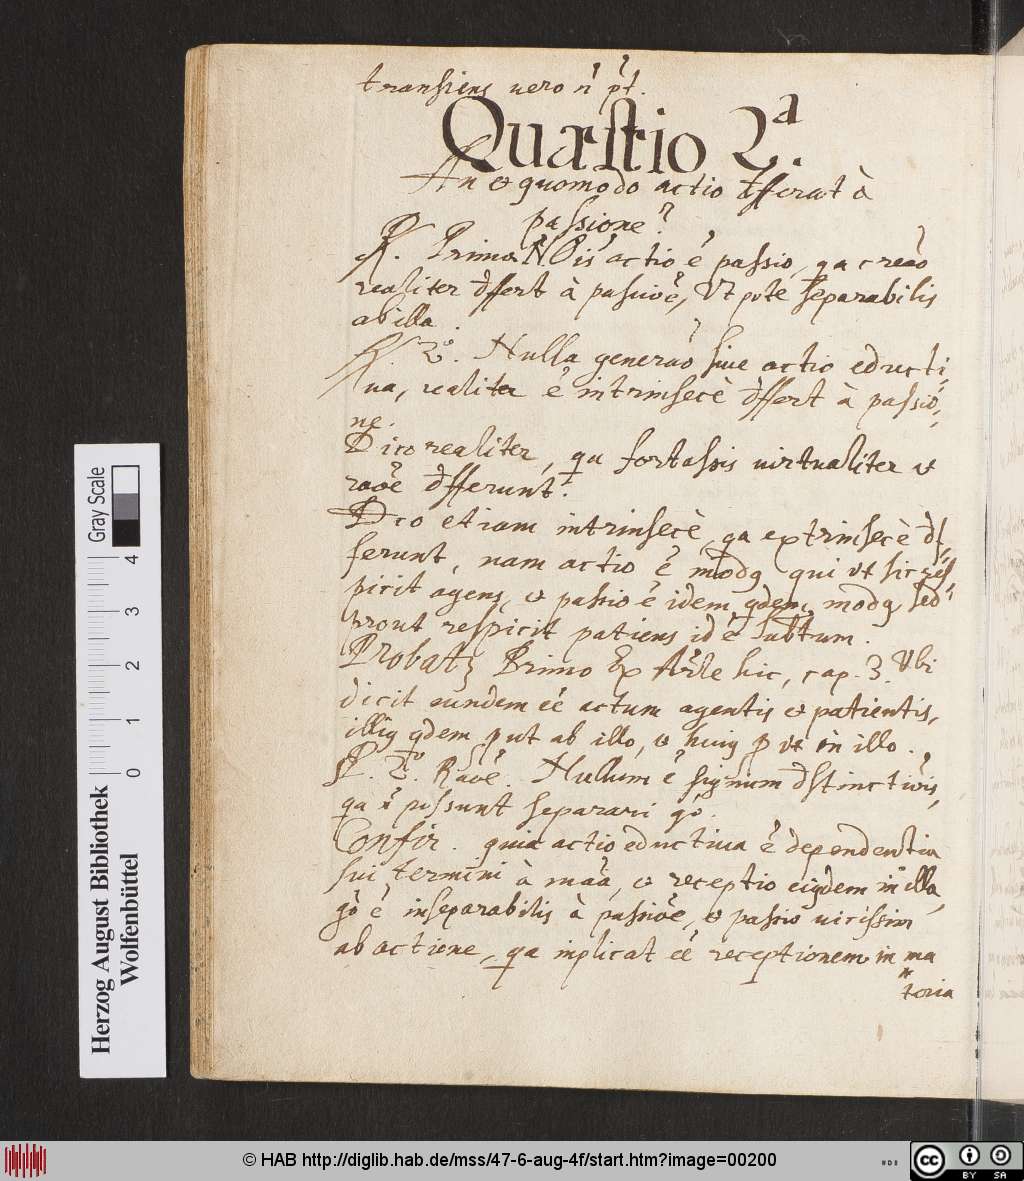 transiens vero ñ pt.
Quæstio 2ª.
An & quomodo actio dfferat à
passione?
R. Primo Ois actio ẽ passio, qa creaõ
realiter dffert à passioẽ, Vt pote separabilis
ab illa.
R. 2º. Nulla generaõ siue actio educti,
ua, realiter & intrinsecè dffert à passio,
ne.
Dico realiter, qa fortassis uirtualiter &
raõe dfferunt.
Dico etiam intrinsecè, qa extrinsecè df,
ferunt, nam actio ẽ modq qui vt sic res,
picit agens, & passio ẽ idem qdem modq sed
prout respicit patiens id ẽ subtum.
Probatz Primo Ex Arle hic, cap. 3. Vbi
dicit eundem eẽ actum agentis & patientis,
illiq qdem put ab illo, & huiq p vt in illo.
P. 2º. Raoẽ. Nullum ẽ signum dstinctiõis,
qa ñ possunt separari gº.
Confir. quia actio eductiua ẽ dependentia
sui termini à maã, & receptio eiqdem in illa,
gº ẽ inseparabilis à passioẽ, & passio uicissim
ab actione, qa inplicat eẽ receptionem in ma
teria
Gray Scale
0 1 2 3 4
Herzog August Bibliothek
Wolfenbüttel
© HAB http://diglib.hab.de/mss/47-6-aug-4f/start.htm?image=00200
cc BY SA